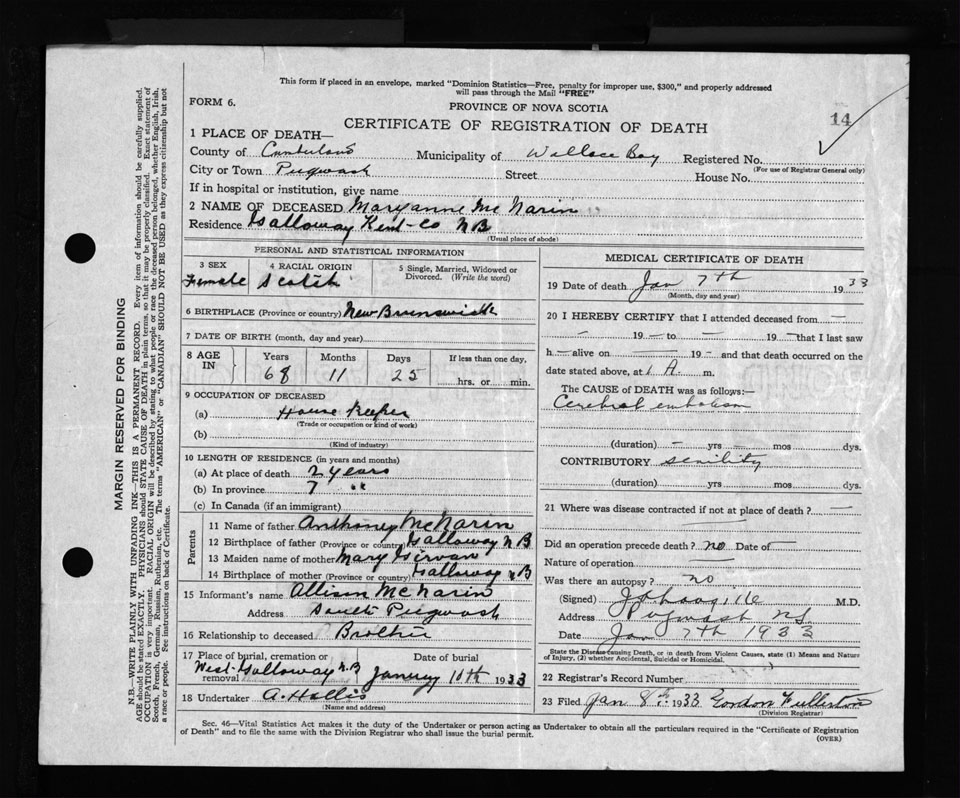 This form if placed in an envelope, marked "Dominion Statistics—Free, penalty for improper use, $300," and properly addressed
will pass through the Mail "FREE"
FORM 6.
PROVINCE OF NOVA SCOTIA
14
CERTIFICATE OF REGISTRATION OF DEATH
1 PLACE OF DEATH—
County of Cumberland Municipality of Wallace Bay Registered No.
(For use of Registrar General only)
City or Town Pugwash Street House No.
If in hospital or institution, give name
2 NAME OF DECEASED Maryanne Mc Narin
Residence Galloway Kent-Co NB
(Usual place of abode)
PERSONAL AND STATISTICAL INFORMATION
3 SEX 4 RACIAL ORIGIN 5 Single, Married, Widowed or
Divorced. (Write the word)
Female Scotch
6 BIRTHPLACE (Province or country) New Brunswick
7 DATE OF BIRTH (month, day and year)
8 AGE IN Years Months Days If less than one day,
68 11 25 hrs. or min.
9 OCCUPATION OF DECEASED
(a) House Keeper
(Trade or occupation or kind of work)
(b)
(Kind of industry)
10 LENGTH OF RESIDENCE (in years and months)
(a) At place of death 2 years
(b) In province 7 "
(c) In Canada (if an immigrant)
Parents
11 Name of father Anthoney McNarin
12 Birthplace of father (Province or country) Galloway N B
13 Maiden name of mother Mary Girvan
14 Birthplace of mother (Province or country) Galloway N B
15 Informant's name Allison McNarin
Address South Pugwash
16 Relationship to deceased Brother
17 Place of burial, cremation or removal West-Galloway N.B Date of burial January 10th 1933
18 Undertaker A. Hollis
(Name and address)
MEDICAL CERTIFICATE OF DEATH
19 Date of death Jan 7th 1933
(Month, day and year)
20 I HEREBY CERTIFY that I attended deceased from —
— 19 — to — 19 — that I last saw
h — alive on — 19 — and that death occurred on
date stated above, at 1 A. m.
The CAUSE of DEATH was as follows:—
Cerebral embolism
(duration) — yrs — mos dys.
CONTRIBUTORY senility
(duration) yrs. mos. dys.
21 Where was disease contracted if not at place of death? —
Did an operation precede death? no Date of —
Nature of operation —
Was there an autopsy? no
(Signed) M.D.
Address Pugwash NS
Date Jan 7th 1933
State the Disease causing Death, or in death from Violent Causes, state (1) Means and Nature
of Injury, (2) whether Accidental, Suicidal or Homicidal.
22 Registrar's Record Number
23 Filed Jan 8th 1933 Gordon Fullerton
(Division Registrar)
Sec. 46—Vital Statistics Act makes it the duty of the Undertaker or person acting as Undertaker to obtain all the particulars required in the "Certificate of Registration
of Death" and to file the same with the Division Registrar who shall issue the burial permit.
(OVER)
MARGIN RESERVED FOR BINDING
N.B.—WRITE PLAINLY WITH UNFADING INK—THIS IS A PERMANENT RECORD. Every item of information should be carefully supplied.
AGE should be stated EXACTLY. PHYSICIANS should STATE CAUSE OF DEATH in plain terms, so that it may be properly classified. Exact statement of
OCCUPATION is very important. RACIAL ORIGIN will be described by stating to what people or race the deceased person belonged, whether English, Irish,
Scotch, French, German, Russian, Ruthenian, etc. The terms "AMERICAN" or "CANADIAN" SHOULD NOT BE USED as they express citizenship but not
a race or people. See instructions on back of Certificate.